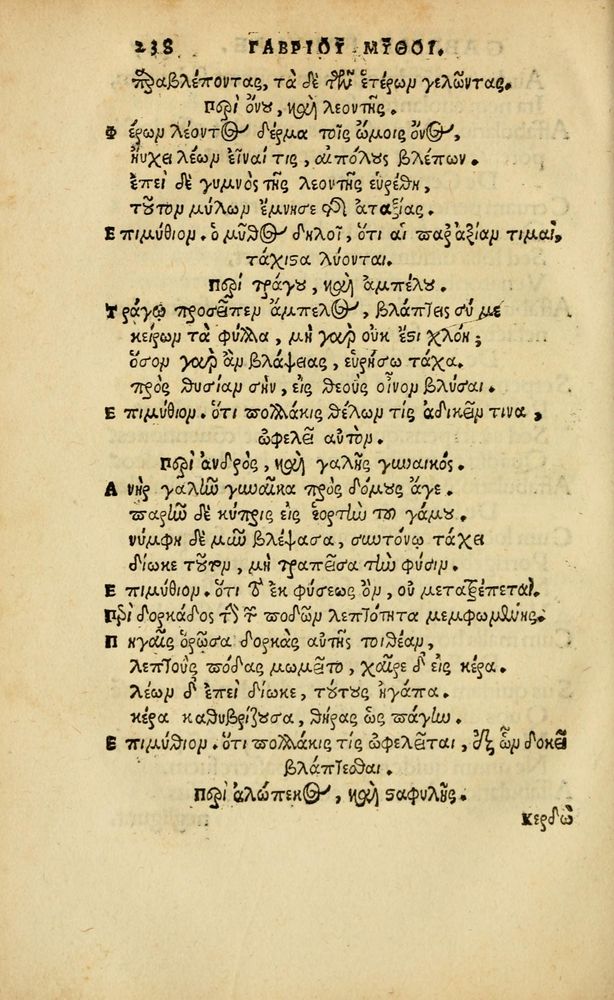 238 ΓΑΒΡΙΟΥ ΜΥΘΟΙ.
παραβλέποντας, τὰ δὲ τῶν ἑτέρων γελῶντας.
Περὶ ὄνου, καὶ λεοντῆς.
Φέρων λέοντος δέρμα τοῖς ὤμοις ὄνος,
ηὔχει λέων εἶναί τις, αἰπόλους βλέπων.
ἐπεὶ δὲ γυμνὸς τῆς λεοντῆς εὑρέθη,
τοῦτον μύλων ἔμνησε τῆς ἀταξίας.
Επιμύθιον. ὁ μῦθος δηλοῖ, ὅτι αἱ παρ' ἀξίαν τιμαὶ,
τάχιστα λύονται.
Περὶ τράγου, καὶ ἀμπέλου.
Τράγῳ προσεῖπεν ἄμπελος, βλάπτεις σύ με
κείρων τὰ φύλλα, μὴ γὰρ οὐκ ἔστι χλόη;
ὅσον γὰρ ἂν βλάψειας, εὑρήσω τάχα.
πρὸς θυσίαν σὴν, εἰς θεοὺς οἶνον βλύσαι.
Επιμύθιον. ὅτι πολλάκις θέλων τίς ἀδικεῖν τινα,
ὠφελεῖ αὐτόν.
Περὶ ἀνδρὸς, καὶ γαλῆς γυναικός.
Ανὴρ γαλῆν γυναῖκα πρὸς δόμους ἄγε.
παρῆν δὲ κύπρις εἰς ἑορτὴν τοῦ γάμου.
νύμφη δὲ μῦν βλέψασα, συντόνῳ τάχει
δίωκε τοῦτον, μὴ τραπεῖσα τὴν φύσιν.
Επιμύθιον. ὅτι τὸ ἐκ φύσεως ὂν, οὐ μετατρέπεται.
Περὶ δορκάδος τὴν τῶν ποδῶν λεπτότητα μεμφομένης.
Πηγαῖς ὁρῶσα δορκὰς αὐτῆς τοιθέαν,
λεπτοὺς πόδας μωμεῖτο, χαῖρε δ' εἰς κέρα.
λέων δ' ἐπεὶ δίωκε, τούτους ἠγάπα.
κέρα καθυβρίζουσα, θήρας ὡς πάγην.
Επιμύθιον. ὅτι πολλάκις τίς ὠφελεῖται, ἐξ ὧν δοκεῖ
βλάπτεσθαι.
Περὶ ἀλώπεκος, καὶ σταφυλῆς.
Κερδὼ